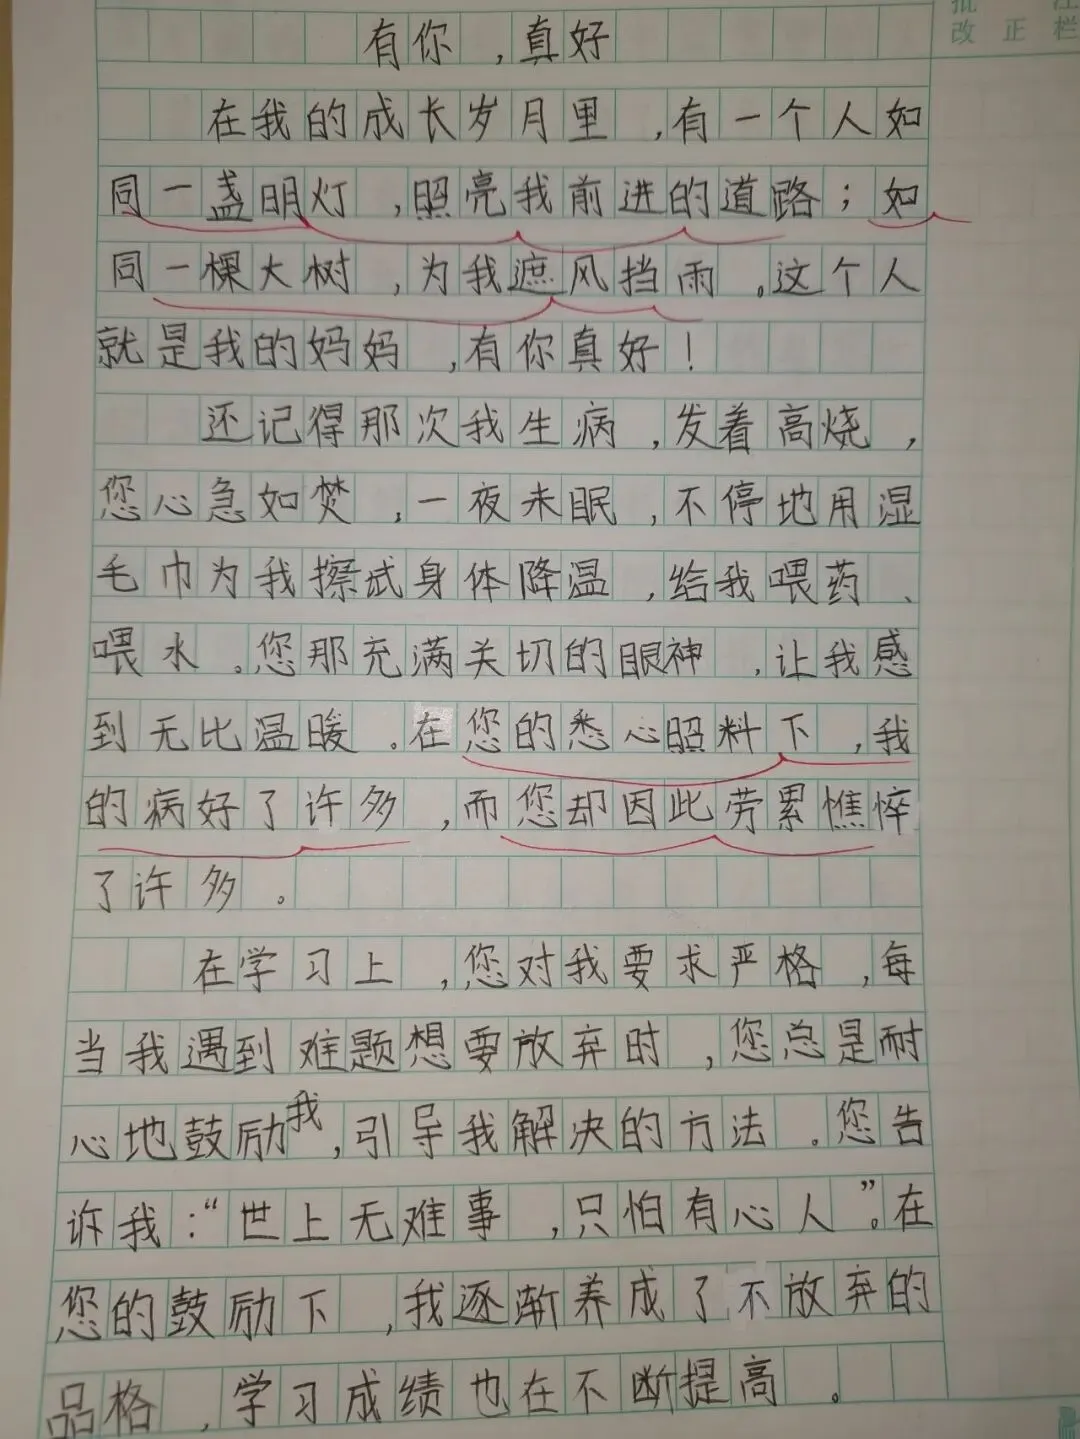 批 注
改 正 栏
有你，真好
在我的成长岁月里，有一个人如
同一盏明灯，照亮我前进的道路；如
同一棵大树，为我遮风挡雨。这个人
就是我的妈妈，有你真好！
还记得那次我生病，发着高烧，
您心急如焚，一夜未眠，不停地用湿
毛巾为我擦试身体降温，给我喂药、
喂水。您那充满关切的眼神，让我感
到无比温暖。在您的悉心照料下，我
的病好了许多，而您却因此劳累憔悴
了许多。
在学习上，您对我要求严格，每
当我遇到难题想要放弃时，您总是耐
心地鼓励我，引导我解决的方法。您告
诉我：“世上无难事，只怕有心人”。在
您的鼓励下，我逐渐养成了不放弃的
品格，学习成绩也在不断提高。